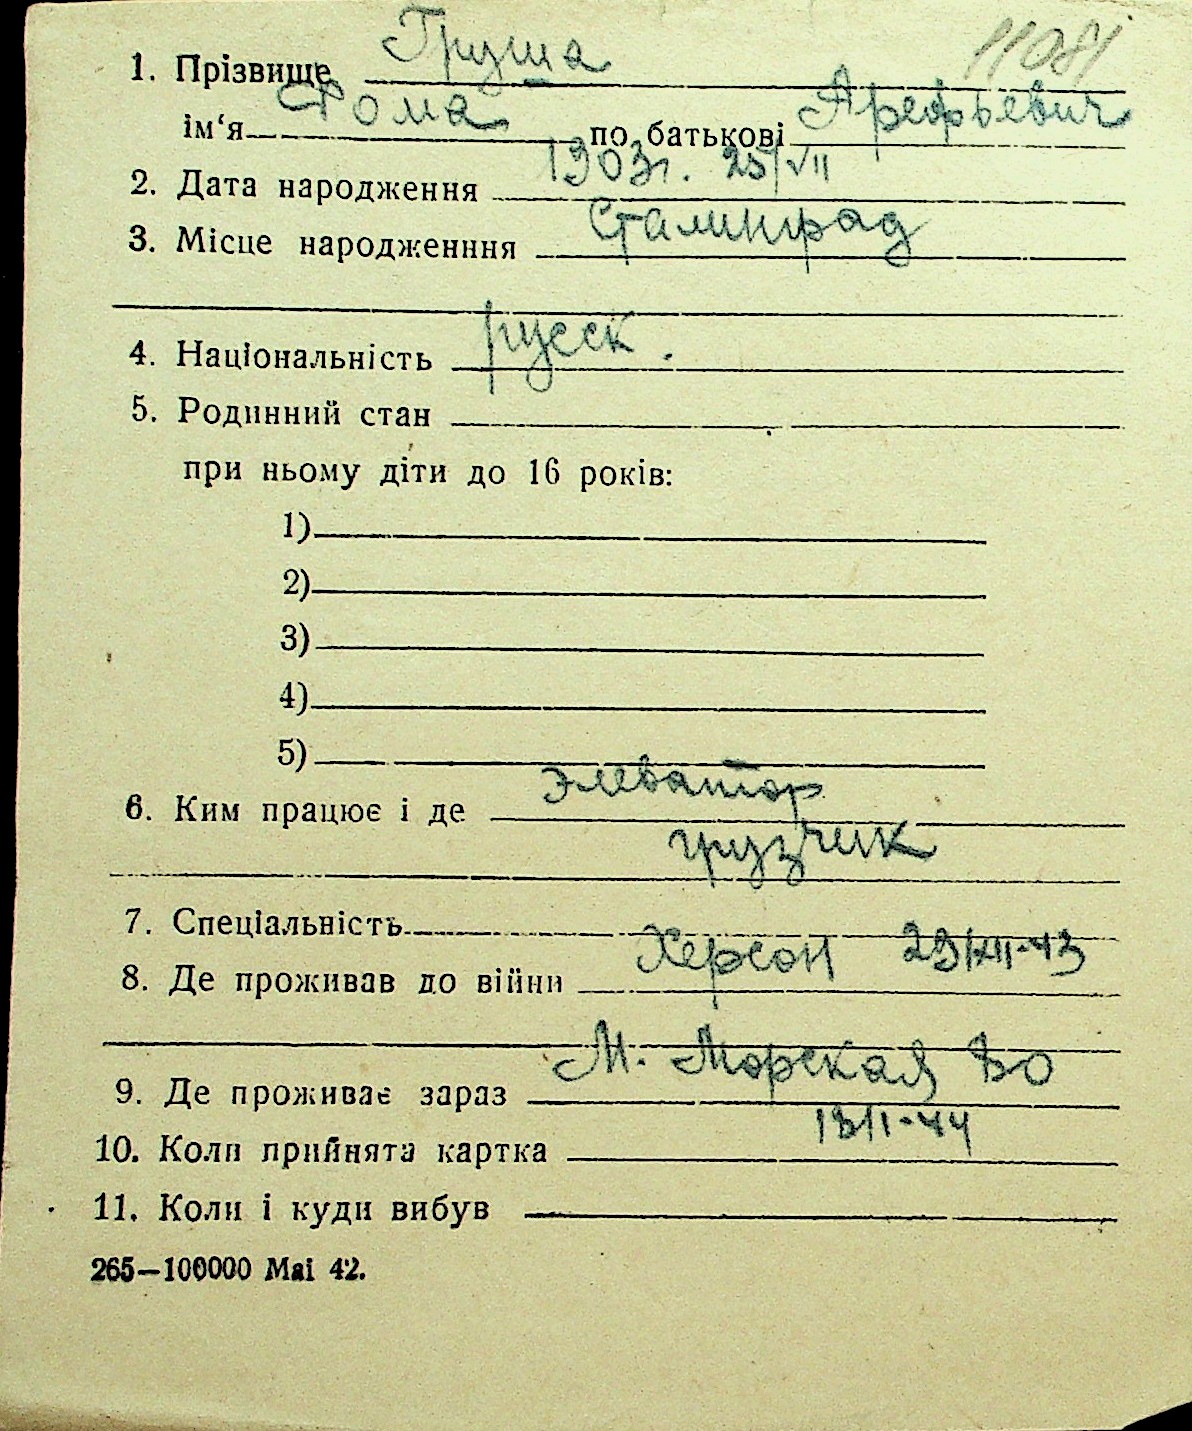 11081
1. Прізвище Груша
ім‘я Фома по батькові Арефьевич
2. Дата народження 1903 г. 25/VII
3. Місце народженння Сталинград
4. Національність русск.
5. Родинний стан
при ньому діти до 16 років:
1)
2)
3)
4)
5)
6. Ким працює і де элеватор
грузчик
7. Спеціальність
8. Де проживав до війни Херсон 29/XII-43
9. Де проживає зараз М. Морская
10. Коли прийнята картка 13/I-44
11. Коли і куди вибув
265—100000 Mai 42.